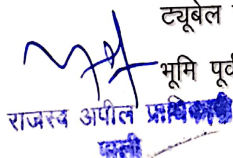 ट्यूबेल
भूमि पूर्व
राजस्व अपील प्राधिकारी
पाली